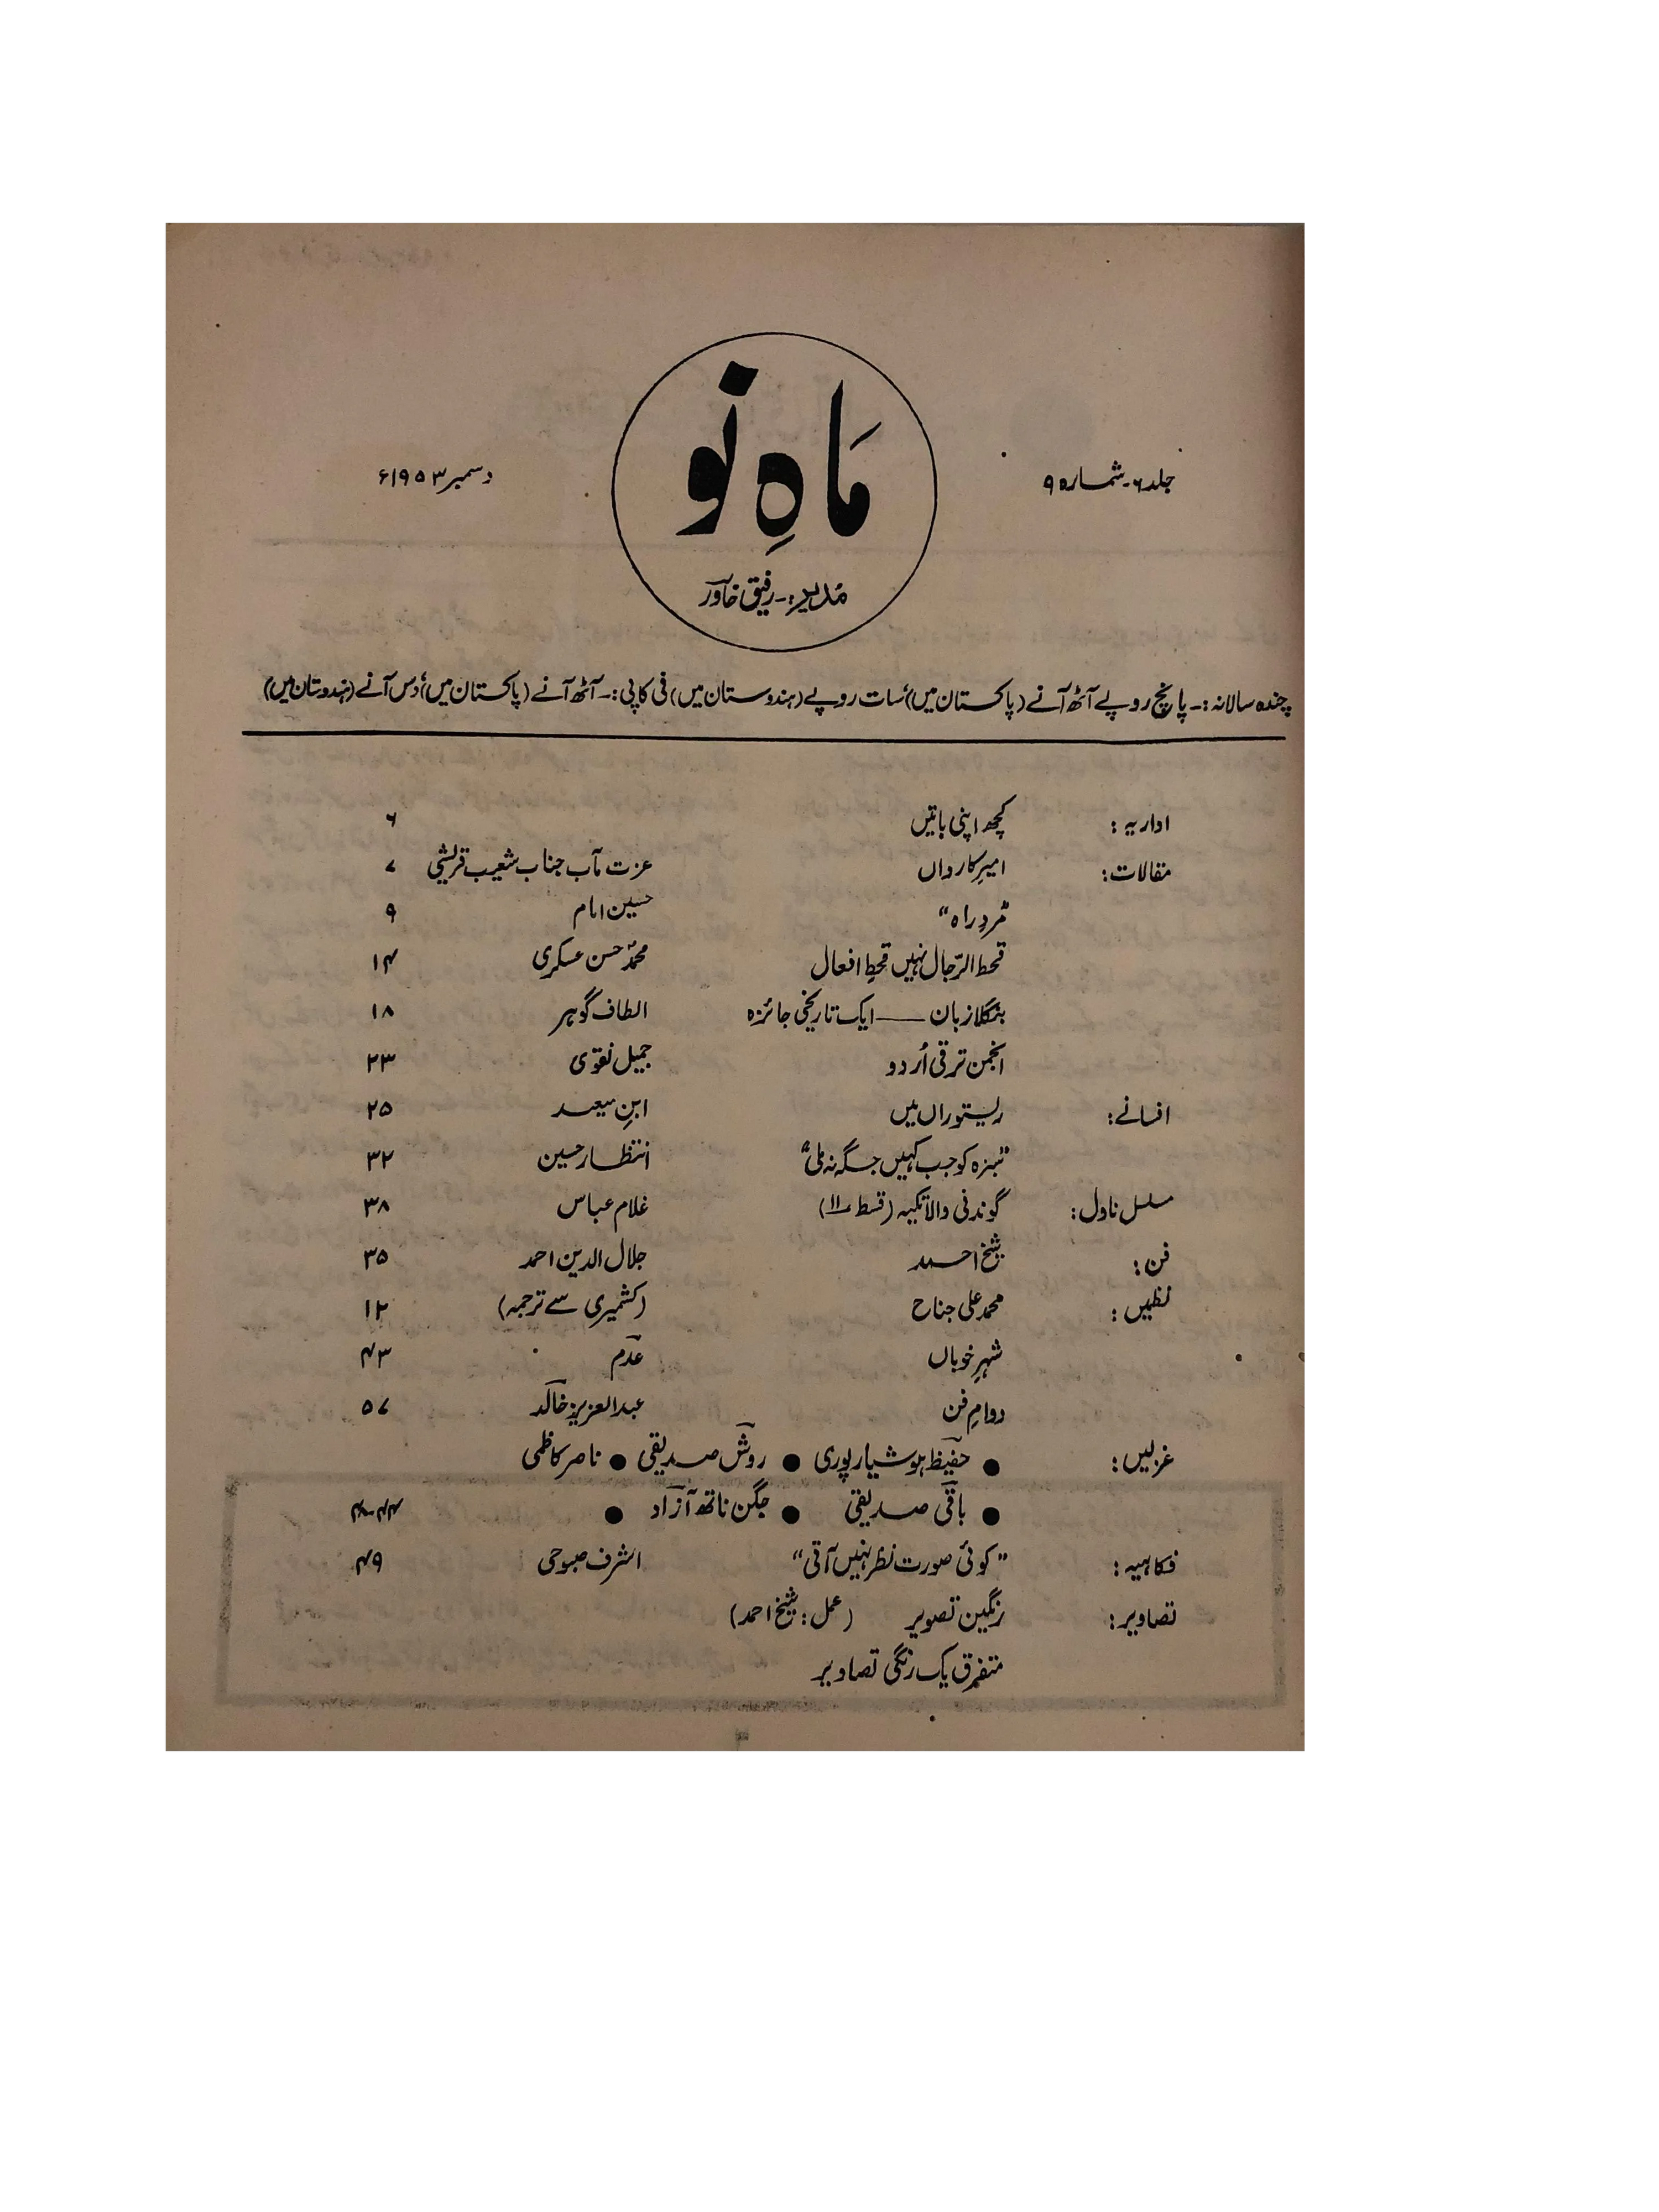 جلد ۶۔ شمارہ ۹
ماہِ نو
دسمبر ۱۹۵۳ء
مُدیر:۔ رفیق خاور
چندہ سالانہ :۔ پانچ روپے آٹھ آنے (پاکستان میں) سات روپے (ہندوستان میں) فی کاپی :۔ آٹھ آنے (پاکستان میں) دس آنے (ہندوستان میں)
اداریہ : کچھ اپنی باتیں ۶
مقالات : امیرِ کارواں عزت مآب جناب شعیب قریشی ۷
"مردِ راہ" حسین امام ۹
قحط الرّجال نہیں قحطِ افعال محمدؐ حسن عسکری ۱۴
بنگلا زبان ــــــ ایک تاریخی جائزہ الطاف گوہر ۱۸
انجمن ترقی اُردو جمیل نقوی ۲۳
افسانے : ریستوراں میں ابنِ سعید ۲۵
"سبزہ کو جب کہیں جگہ نہ ملی" انتظار حسین ۳۲
مسلسل ناول : گوندنی والا تکیہ (قسط ۱۱) غلام عباس ۳۸
فن : شیخ احمد جلال الدین احمد ۳۵
نظمیں : محمد علی جناح (کشمیری سے ترجمہ) ۱۲
شہرِ خوباں عدم ۴۳
دوامِ فن عبدالعزیز خالد ۵۷
غزلیں : ● حفیظ ہوشیارپوری ● روش صدیقی ● ناصر کاظمی
● باقی صدیقی ● جگن ناتھ آزاد ● ۴۴-۴۸
فکاہیہ : "کوئی صورت نظر نہیں آتی" اشرف صبوحی ۴۹
تصاویر : رنگین تصویر (عمل : شیخ احمد)
متفرق یک رنگی تصاویر